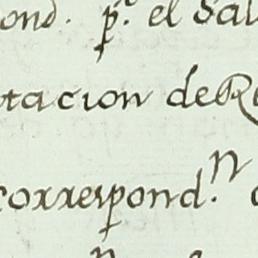 ond. p.º el Sal
tacion de Re
correspond.n